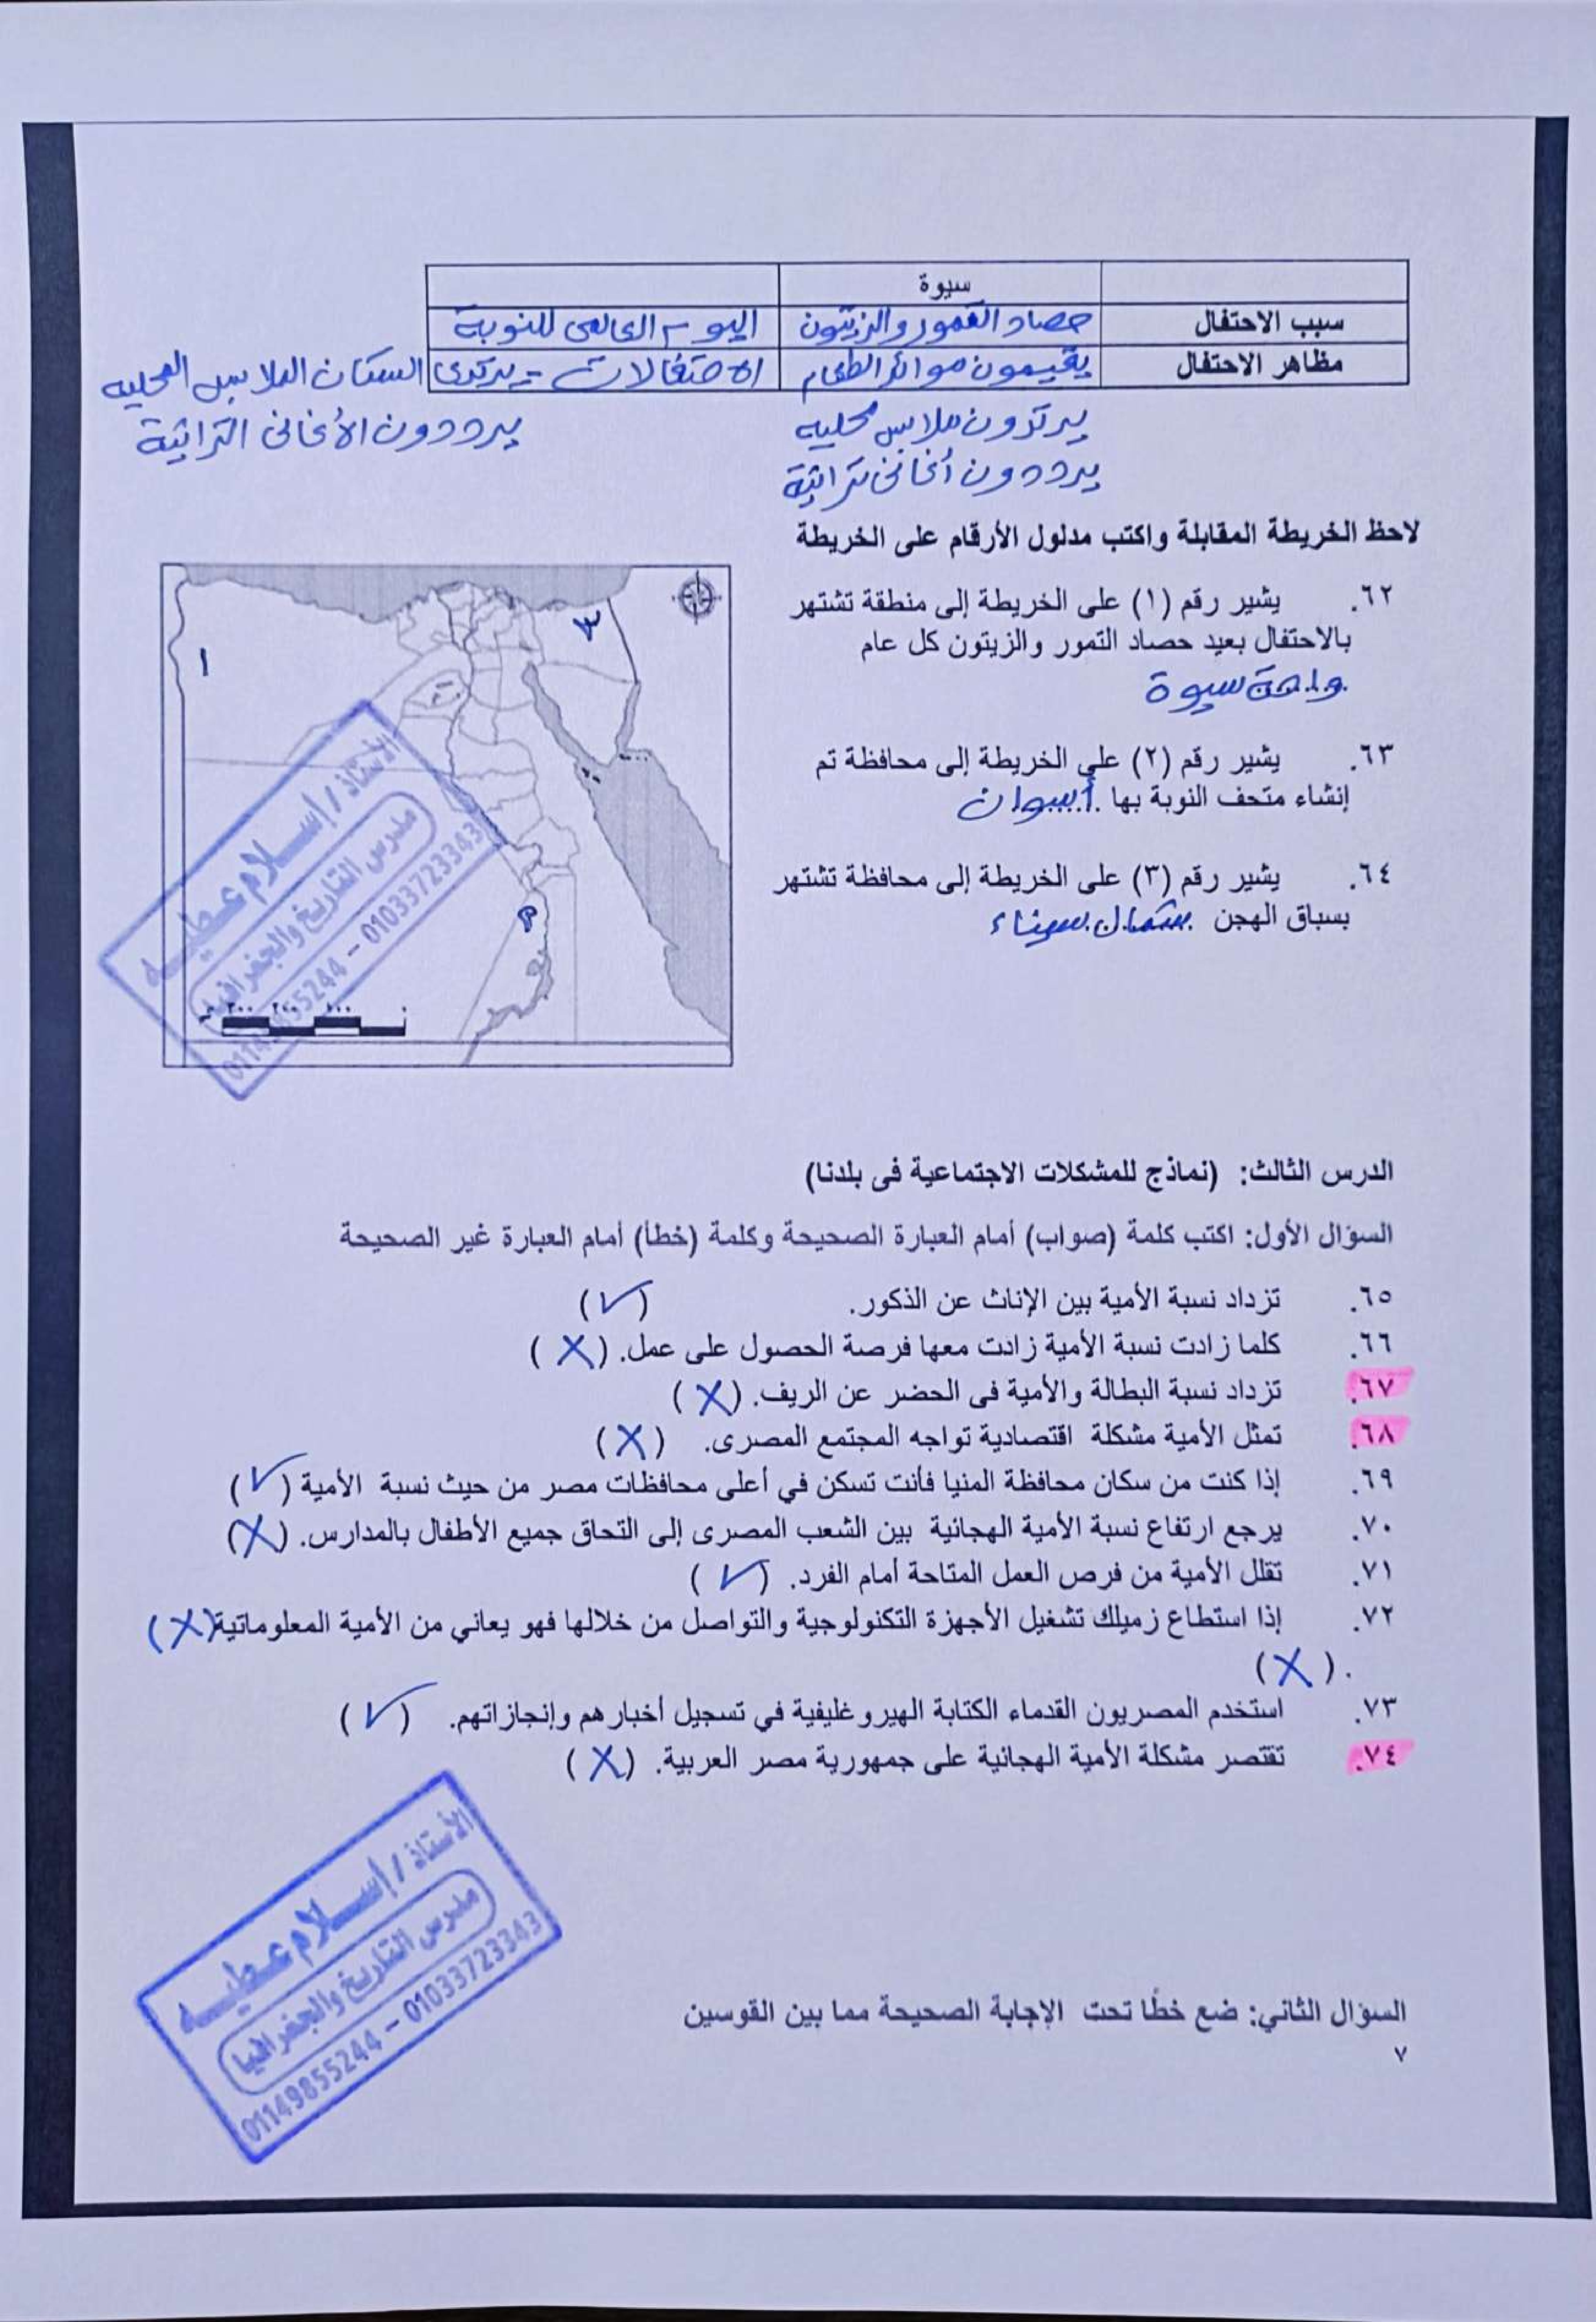 سيوة
سبب الاحتفال حصاد التمور والزيتون اليوم العالمى للنوبة
مظاهر الاحتفال يقيمون موائد الطعام الاحتفالات - يرتدى السكان الملابس المحليه
يرتدون ملابس محليه يرددون الأغانى التراثية
يرددون أغانى تراثية
لاحظ الخريطة المقابلة واكتب مدلول الأرقام على الخريطة
٦٢. يشير رقم (١) على الخريطة إلى منطقة تشتهر
بالاحتفال بعيد حصاد التمور والزيتون كل عام
واحة سيوة
٦٣. يشير رقم (٢) على الخريطة إلى محافظة تم
إنشاء متحف النوبة بها أسوان
٦٤. يشير رقم (٣) على الخريطة إلى محافظة تشتهر
بسباق الهجن شمال سيناء
١
٣
٠ ١٠٠ ٢٠٠ ٣٠٠
الأستاذ / إسلام عطيه
مدرس التاريخ والجغرافيا
01149855244 - 01033723343
الدرس الثالث: (نماذج للمشكلات الاجتماعية فى بلدنا)
السؤال الأول: اكتب كلمة (صواب) أمام العبارة الصحيحة وكلمة (خطأ) أمام العبارة غير الصحيحة
٦٥. تزداد نسبة الأمية بين الإناث عن الذكور. (✓)
٦٦. كلما زادت نسبة الأمية زادت معها فرصة الحصول على عمل. (X)
٦٧. تزداد نسبة البطالة والأمية فى الحضر عن الريف. (X)
٦٨. تمثل الأمية مشكلة اقتصادية تواجه المجتمع المصرى. (X)
٦٩. إذا كنت من سكان محافظة المنيا فأنت تسكن في أعلى محافظات مصر من حيث نسبة الأمية (✓)
٧٠. يرجع ارتفاع نسبة الأمية الهجائية بين الشعب المصرى إلى التحاق جميع الأطفال بالمدارس. (X)
٧١. تقلل الأمية من فرص العمل المتاحة أمام الفرد. (✓)
٧٢. إذا استطاع زميلك تشغيل الأجهزة التكنولوجية والتواصل من خلالها فهو يعاني من الأمية المعلوماتية (X)
. (X)
٧٣. استخدم المصريون القدماء الكتابة الهيروغليفية في تسجيل أخبارهم وإنجازاتهم. (✓)
٧٤. تقتصر مشكلة الأمية الهجائية على جمهورية مصر العربية. (X)
الأستاذ / إسلام عطيه
مدرس التاريخ والجغرافيا
01149855244 - 01033723343
السؤال الثاني: ضع خطًا تحت الإجابة الصحيحة مما بين القوسين
٧